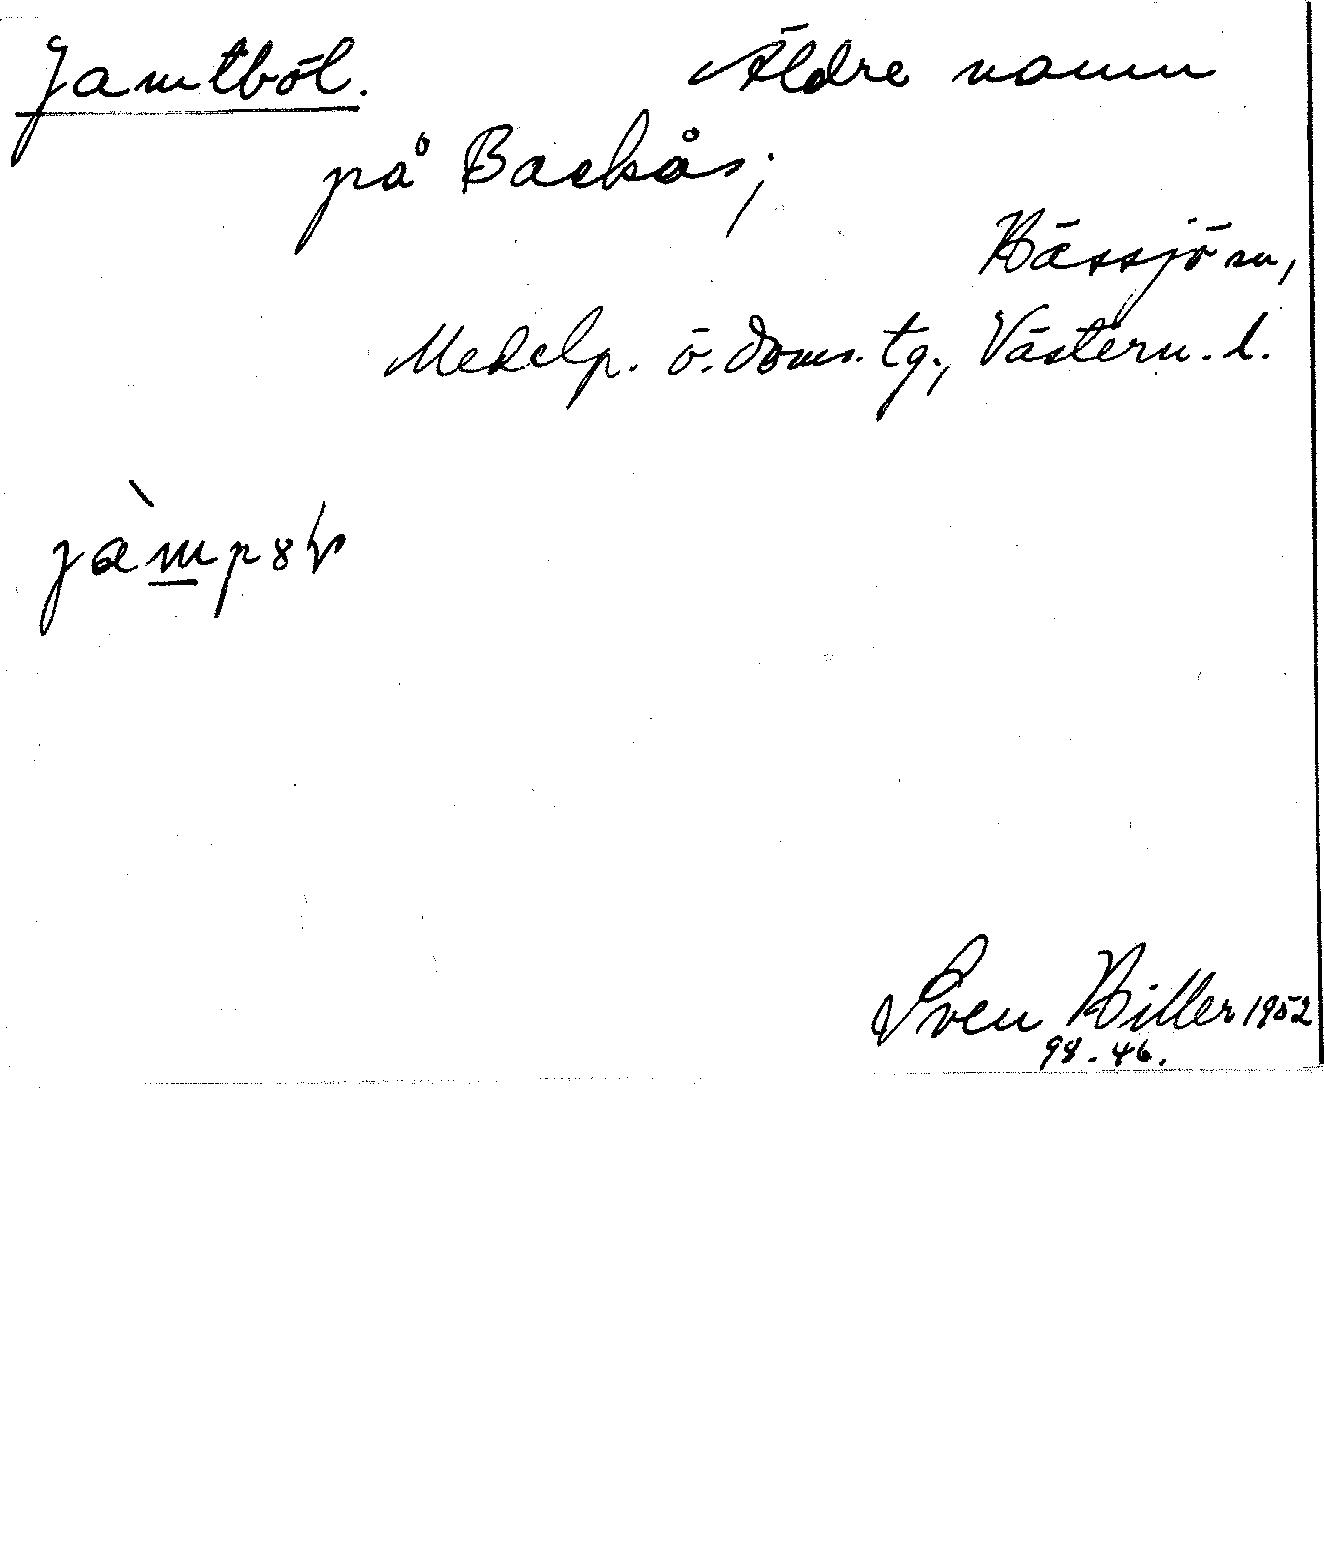 Jamtböl. Äldre namn
på Backås;
Hässjö sn,
Medelp. ö. doms. tg., Västern. l.
Sven Hiller 1952
98. 46.